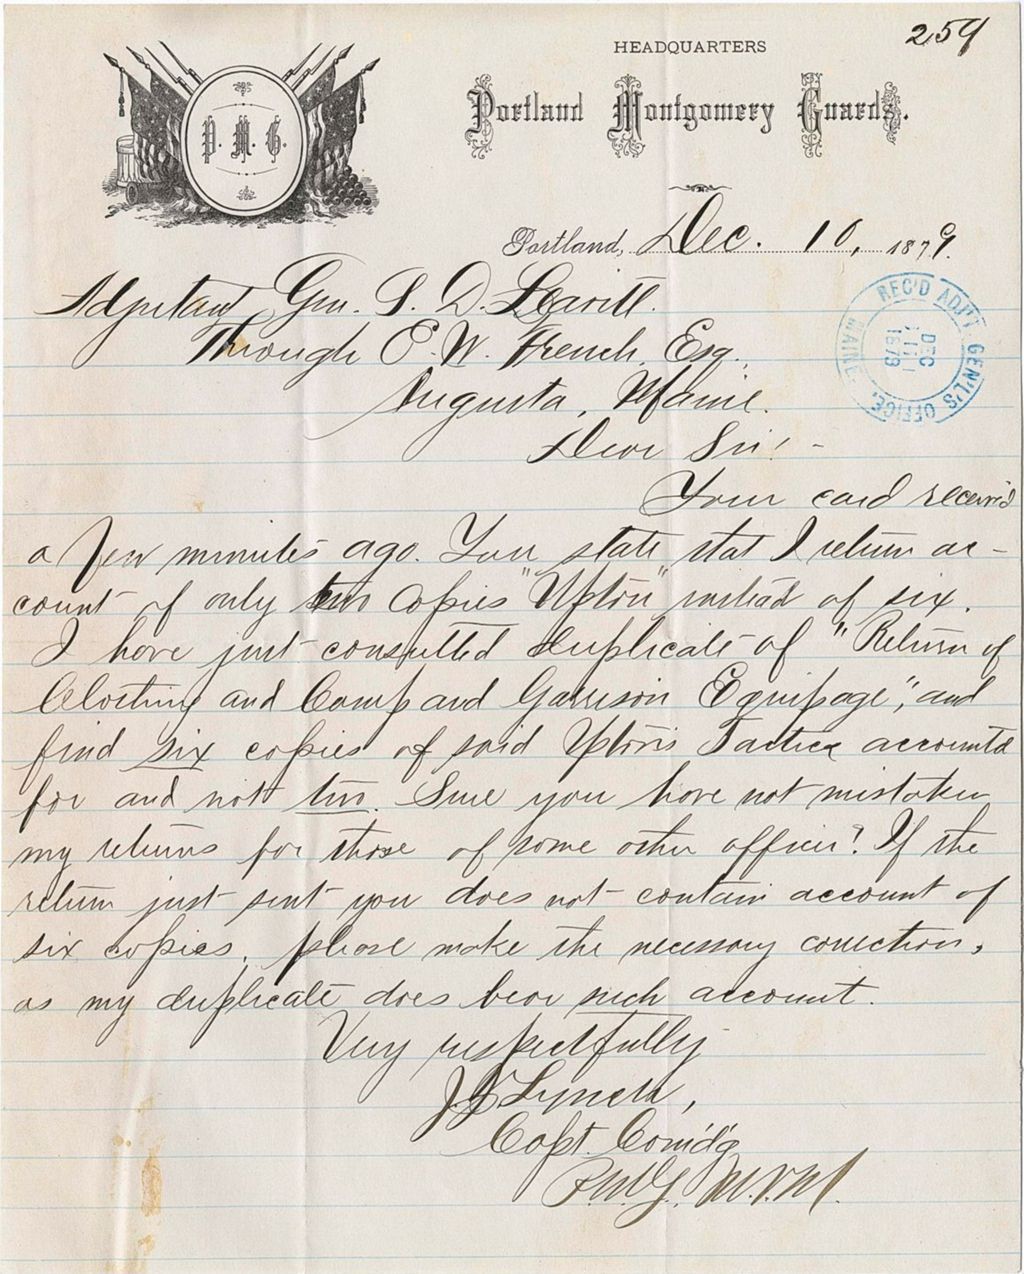 259
HEADQUARTERS
Portland Montgomery Guards.
P. M. G.
Portland, Dec. 10, 1879.
Adjutant Gen. S. D. Leavitt.
Through E. W. French, Esq.
Augusta, Maine.
Dear Sir! -
REC'D ADJ'T GEN'L'S OFFICE, MAINE.
DEC 11 1879
Your card receiv'd
a few minutes ago. You state that I return ac-
count of only two copies "Upton" instead of six.
I have just consulted duplicate of "Return of
Clothing and Camp and Garrison Equipage", and
find six copies of said Upton's Tactics accounted
for and not two. Sure you have not mistaken
my returns for those of some other officer? If the
return just sent you does not contain account of
six copies, please make the necessary corrections,
as my duplicate does bear such account.
Very respectfully
Lynch,
Capt. Com'd'g
P.M.G. M.V.M.